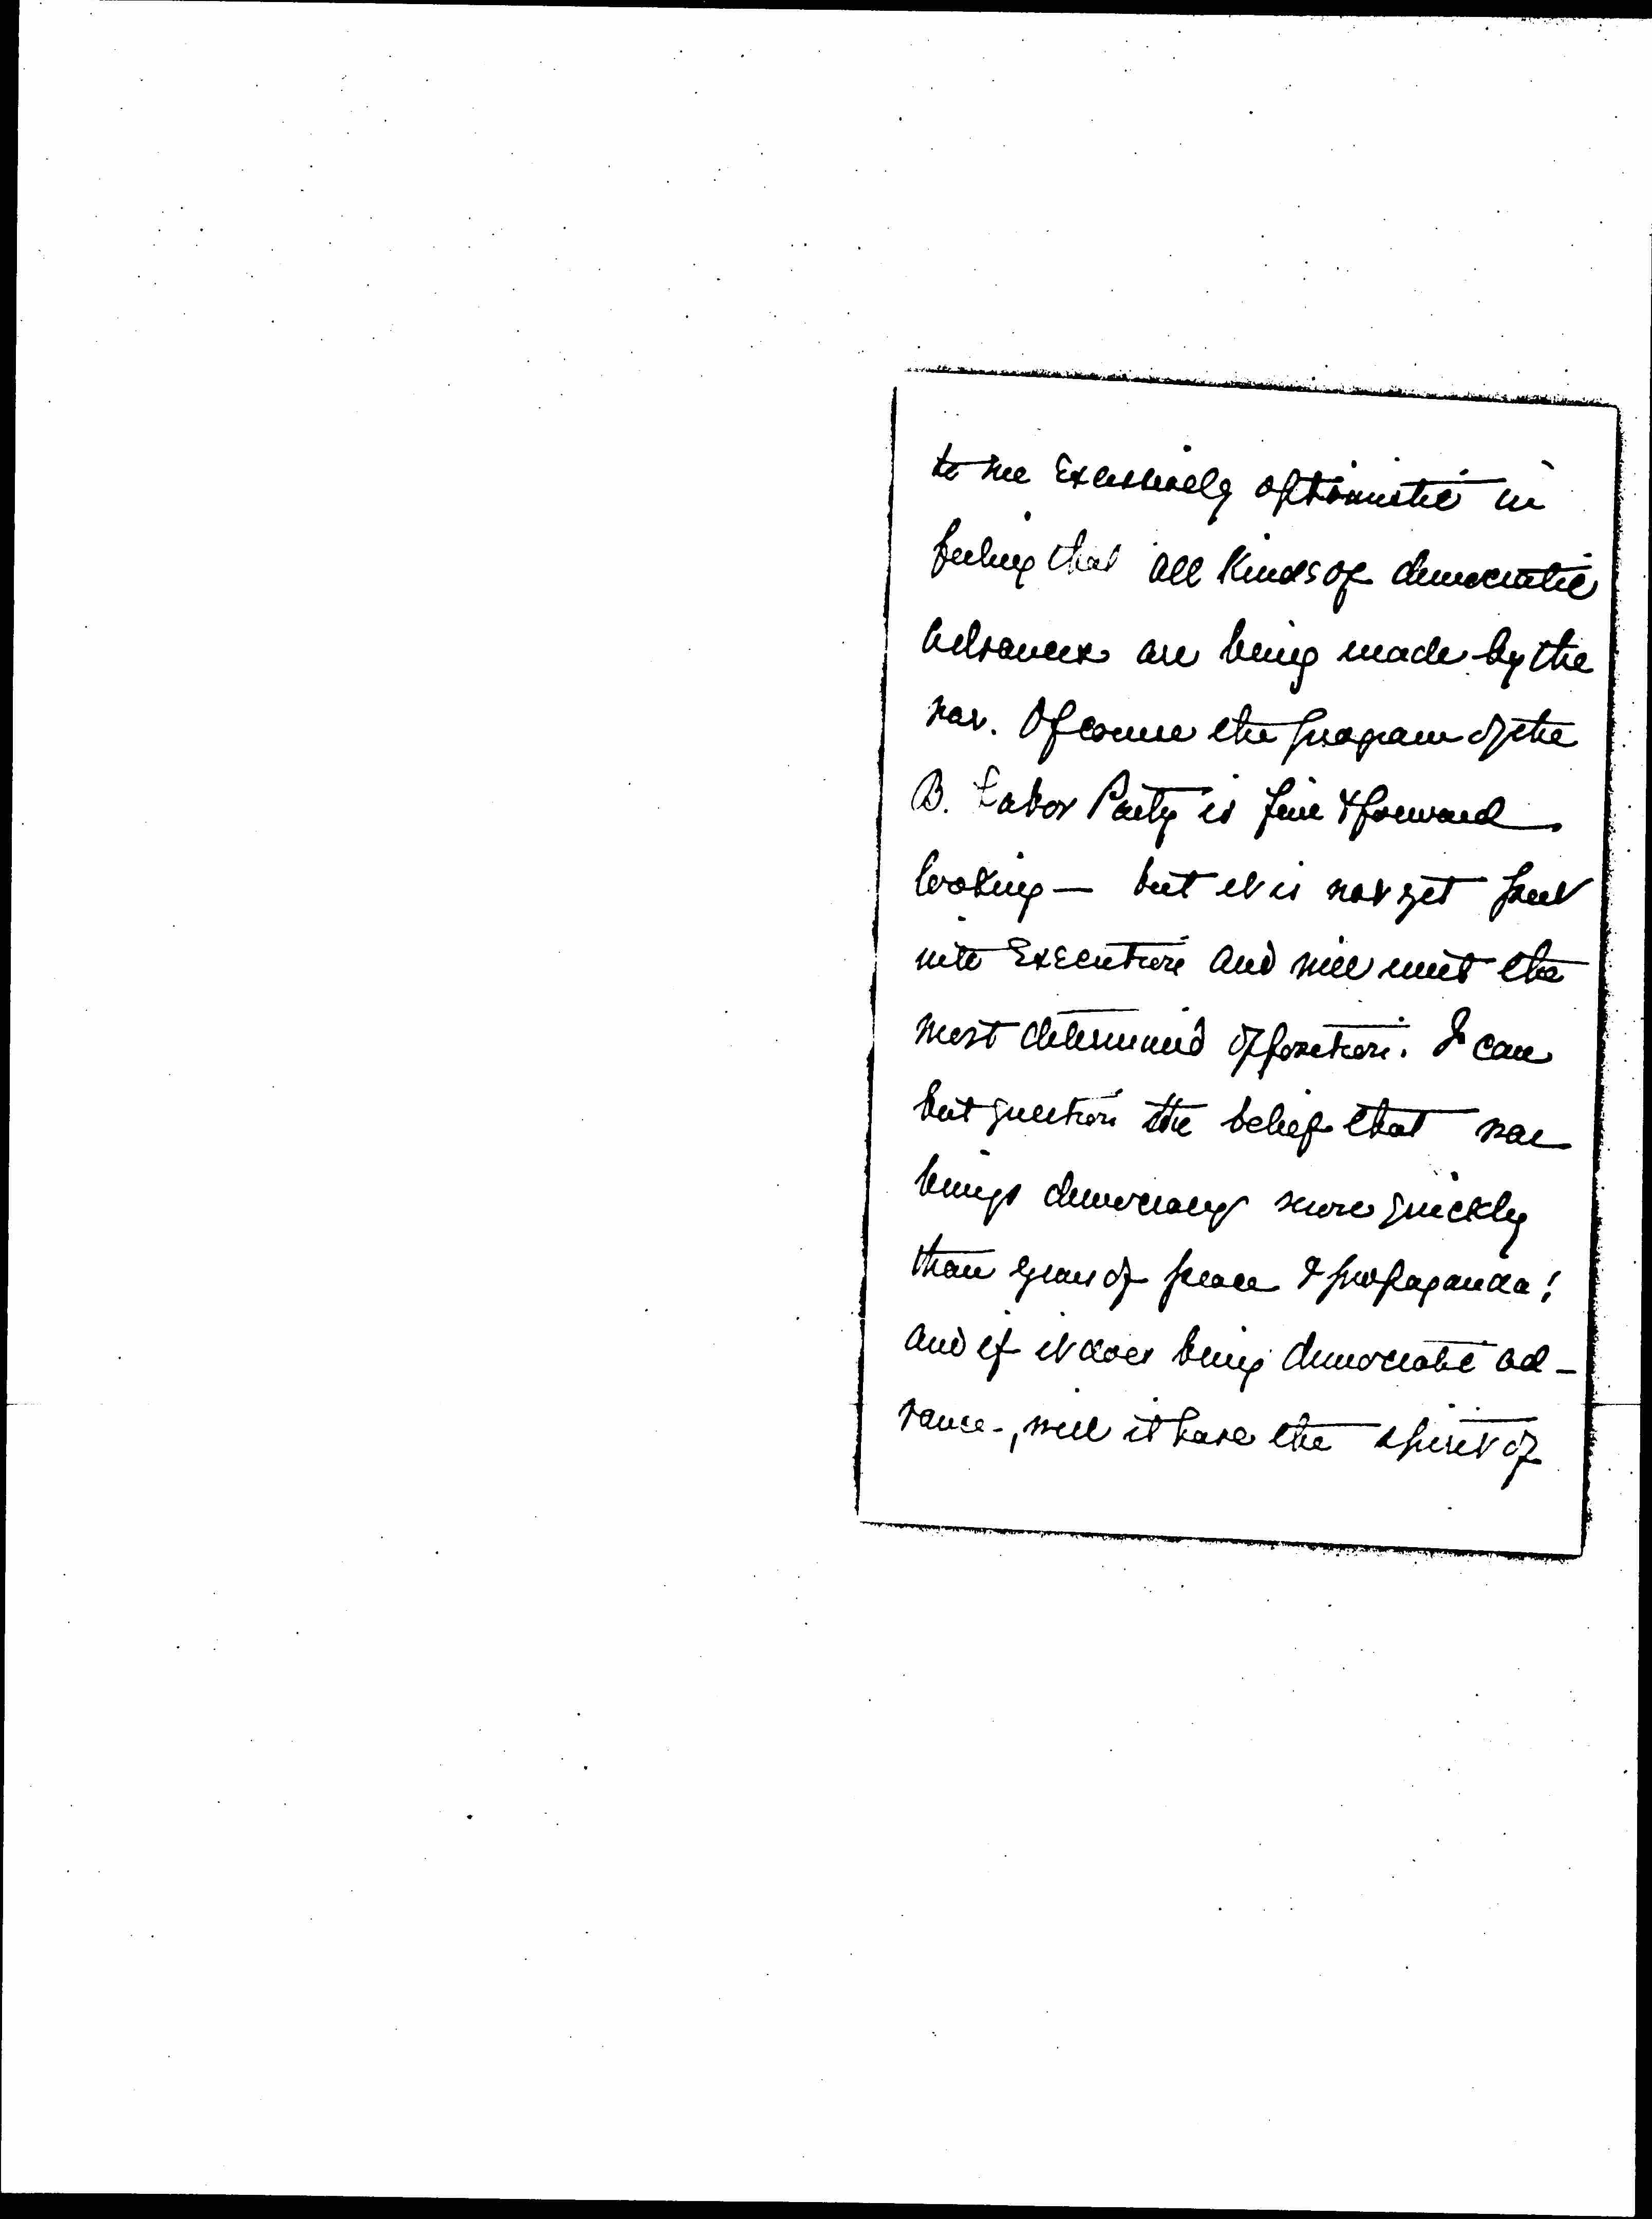 to me excessively optimistic in
feeling that all kinds of democratic
advances are being made by the
war. Of course the program of the
B. Labor Party is fine & forward
looking — but it is not yet put
into execution and will meet the
most determined opposition. I can
but question the belief that war
brings democracy more quickly
than years of peace & propaganda!
And if it does bring democratic ad-
vance-, will it have the spirit of